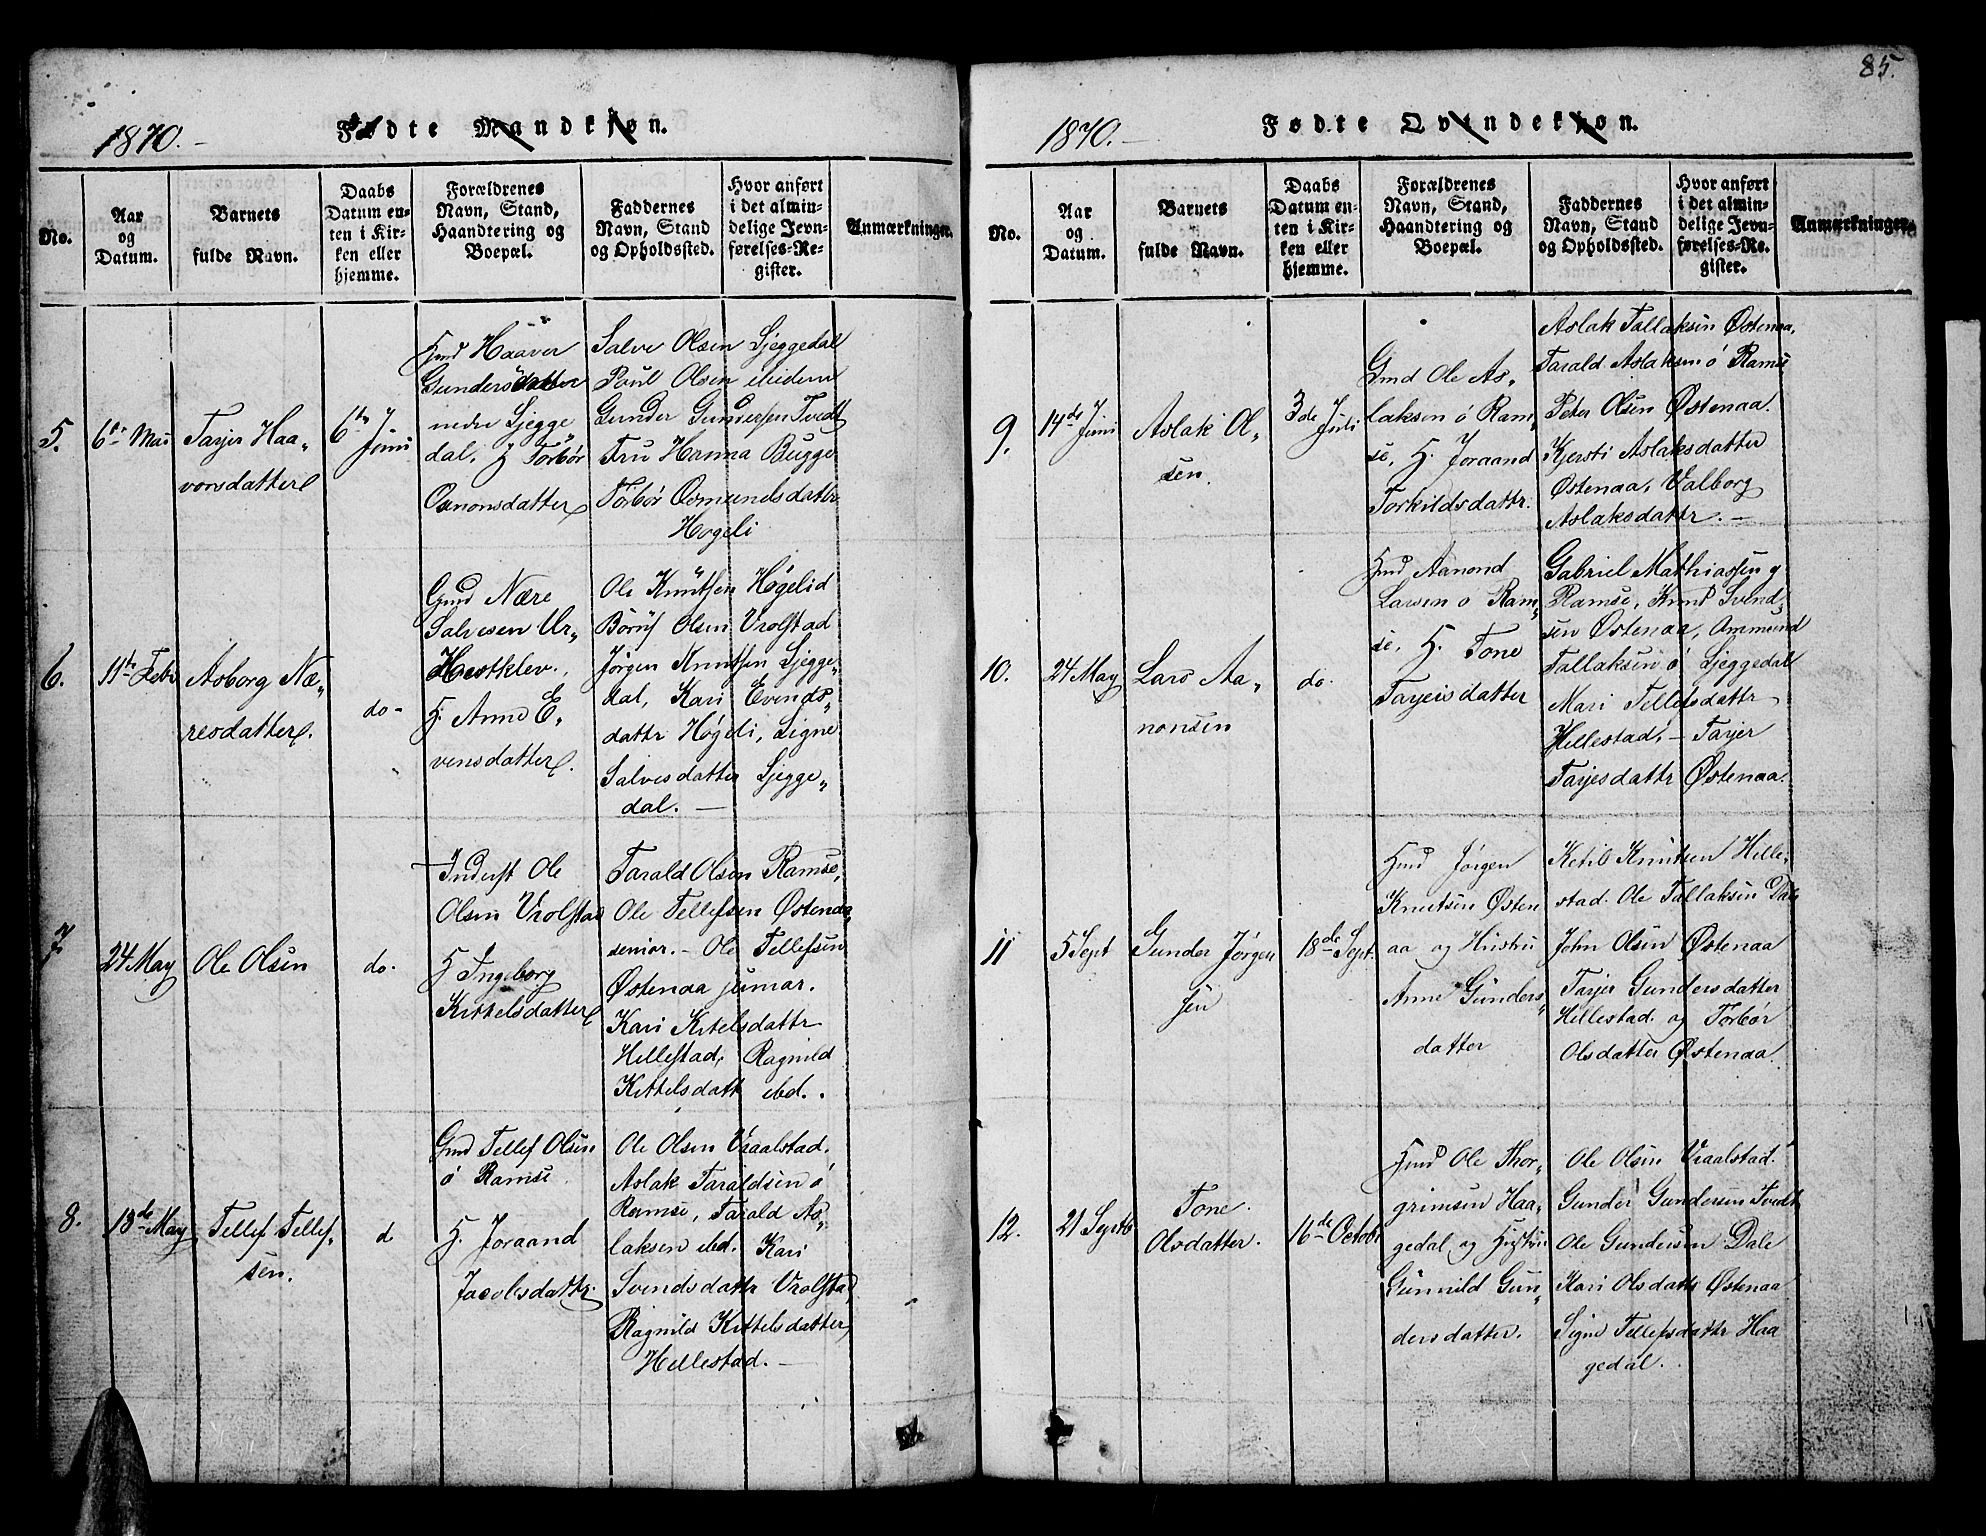 85.
1870.
Fødte Mandkjøn.
No.
Aar
og
Datum.
Barnets
fulde Navn.
Daabs
Datum en-
ten i Kir-
ken eller
hjemme.
Forældrenes
Navn, Stand,
Haandtering og
Boepæl.
Faddernes
Navn, Stand
og Opholdssted.
Hvor anført
i det almin-
delige Jevn-
førelses-Re-
gister.
Anmærkninger.
5.
6te Mai
Tarjer Haa-
vorsdatter
6te
Juni
Gmd Haaver
Gundersdatter
nedre Ljegge
dal, H Torbør
Osmonsdatter
Salve Olsen Ljeggedal
Paul Olsen ibidem
Gunder Gundersen Tvedt
Fru Hanna Bugge
Torbør Osmundsdattr
Høgeli
6.
11te Febr
Asborg Næ-
resdatter.
do-
Gmd Nære
Salvesen Ur-
Hestklev.
H. Anne E-
vensdatter.
Ole Knutsen Høgelid
Børuf Olsen Vrolstad
Jørgen Knutsen Ljegge-
dal, Kari Evends-
dattr Høgeli, Signe
Salvesdatter Ljegge-
dal. —
7.
24 May
Ole Olsen
do.
Inderst Ole
Olsen Vrolstad
H Ingeborg
Kittelsdatter
Tarald Olsen Ramse,
Ole Tellefsen Østenaa
senior. – Ole Tellefsen
Østenaa junior.
Kari Kitelsdattr
Hillestad, Ragnild
Kittelsdatt ibd.
8.
18de May
Tellef Tellef-
sen.
d
Gmd Tellef Olsen
ó Ramse
H. Joraand
Jacobsdattr.
Ole Olsen Vraalstad.
Aslak Taraldsen ó
Ramse, Tarald As-
laksen ibd. Kari
Svendsdattr Vrolstad,
Ragnild Kittelsdatter
Hillestad. —
1870. —
Fødte Qvindekjøn.
No.
Aar
og
Datum.
Barnets
fulde Navn.
Daabs
Datum en-
ten i Kir-
ken eller
hjemme.
Forældrenes
Navn, Stand,
Haandtering og
Boepæl.
Faddernes
Navn, Stand
og Opholdssted.
Hvor anført
i det almin-
delige Jevn-
førelses-Re-
gister.
Anmærkninger
9.
14de Juni
Aslak Ol-
sen.
3de
Juli
Gmd Ole As-
laksen ó Ram-
se, H. Joraand
Torkildsdattr.
Aslak Tallaksen Østenaa,
Tarald Aslaksen ó Ramse
Peter Olsen Østenaa.
Kjersti Aslaksdatter
Østenaa, Valborg
Aslaksdattr. —
10.
24 May
Lars Aa-
nonsen
do.
Gmd Aanond
Larsen ó Ram-
se, H. Tone
Tarjeisdatter
Gabriel Mathiassen y
Ramse, Knut Svend-
sen Østenaa, Ammund
Tallaksen ó Ljeggedal
Mari Tellefsdatter
Hillestad, – Tarjer
Tarjesdattr Østenaa.
11
5 Sept
Gunder Jørgen
sen
18de Sept.
Gmd Jørgen
Knutsen Østen
aa og Hustru
Anne Gunders-
datter
Ketil Knutsen Hille-
stad. Ole Tallaksen Dale
John Olsen Østenaa
Tarjer Gundersdatter
Hillestad. og Torbør
Olsdatter Østenaa.
12.
21 Septb
Tone
Olsdatter.
16de Octobr
Gmd Ole Thor-
grimsen Haa-
gedal og Hustru
Gunnild Gun-
dersdatter.
Ole Olsen Vraalstad.
Gunder Gundersen Tvedt
Ole Gundersen Dale
Kari Olsdattr Østenaa
Signe Tellefsdattr Haa
gedal.